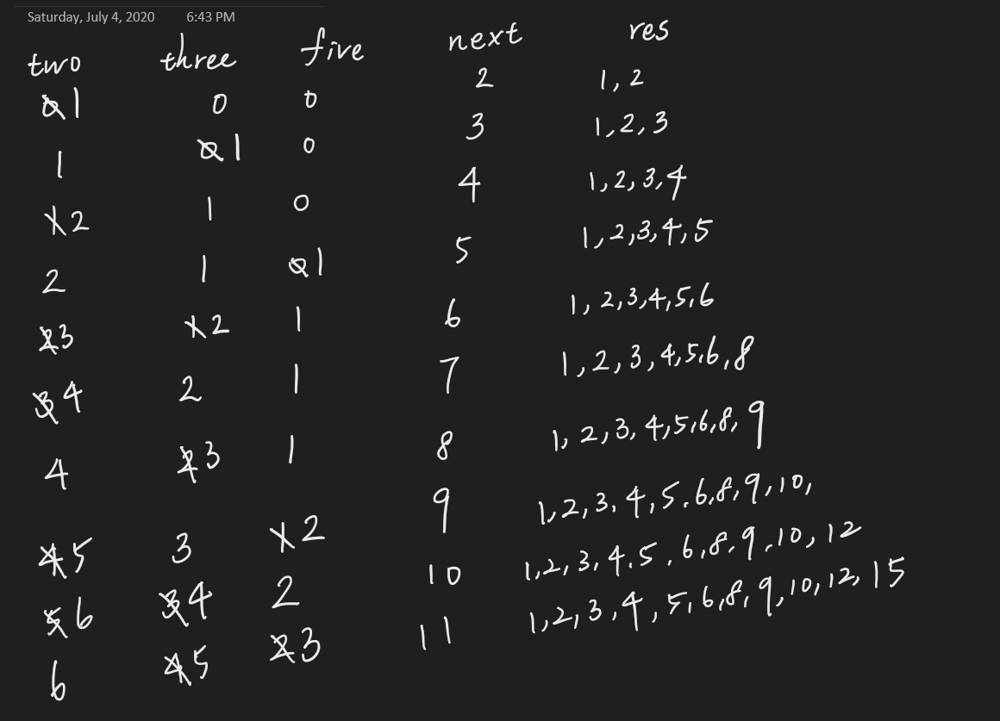 Saturday, July 4, 2020 6:43 PM
two three five next res
0 1 0 0 2 1, 2
1 0 1 0 3 1, 2, 3
1 2 1 0 4 1, 2, 3, 4
2 1 0 1 5 1, 2, 3, 4, 5
2 3 1 2 1 6 1, 2, 3, 4, 5, 6
3 4 2 1 7 1, 2, 3, 4, 5, 6, 8
4 2 3 1 8 1, 2, 3, 4, 5, 6, 8, 9
4 5 3 1 2 9 1, 2, 3, 4, 5, 6, 8, 9, 10,
5 6 3 4 2 10 1, 2, 3, 4, 5, 6, 8, 9, 10, 12
6 4 5 2 3 11 1, 2, 3, 4, 5, 6, 8, 9, 10, 12, 15